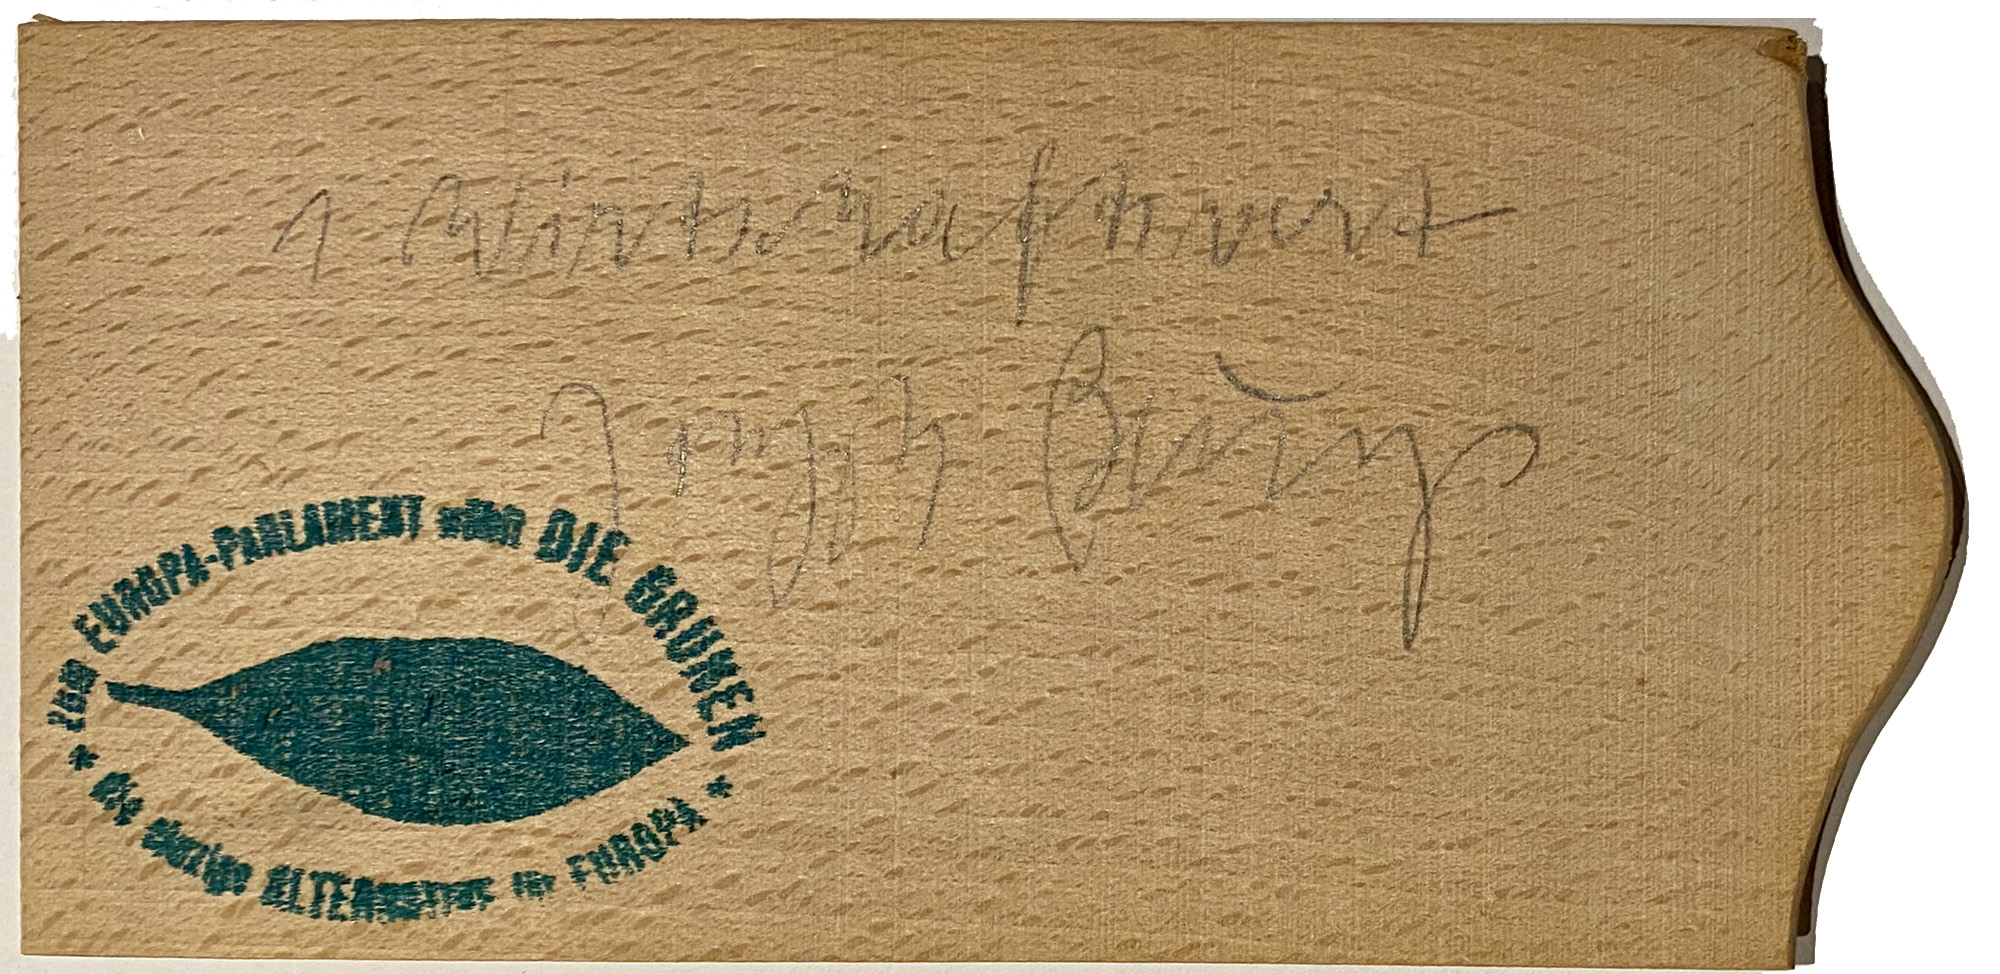 1 Wirtschaftswert
Joseph Beuys
zum EUROPA-PARLAMENT DIE GRÜNEN
* die einzige ALTERNATIVE für EUROPA *